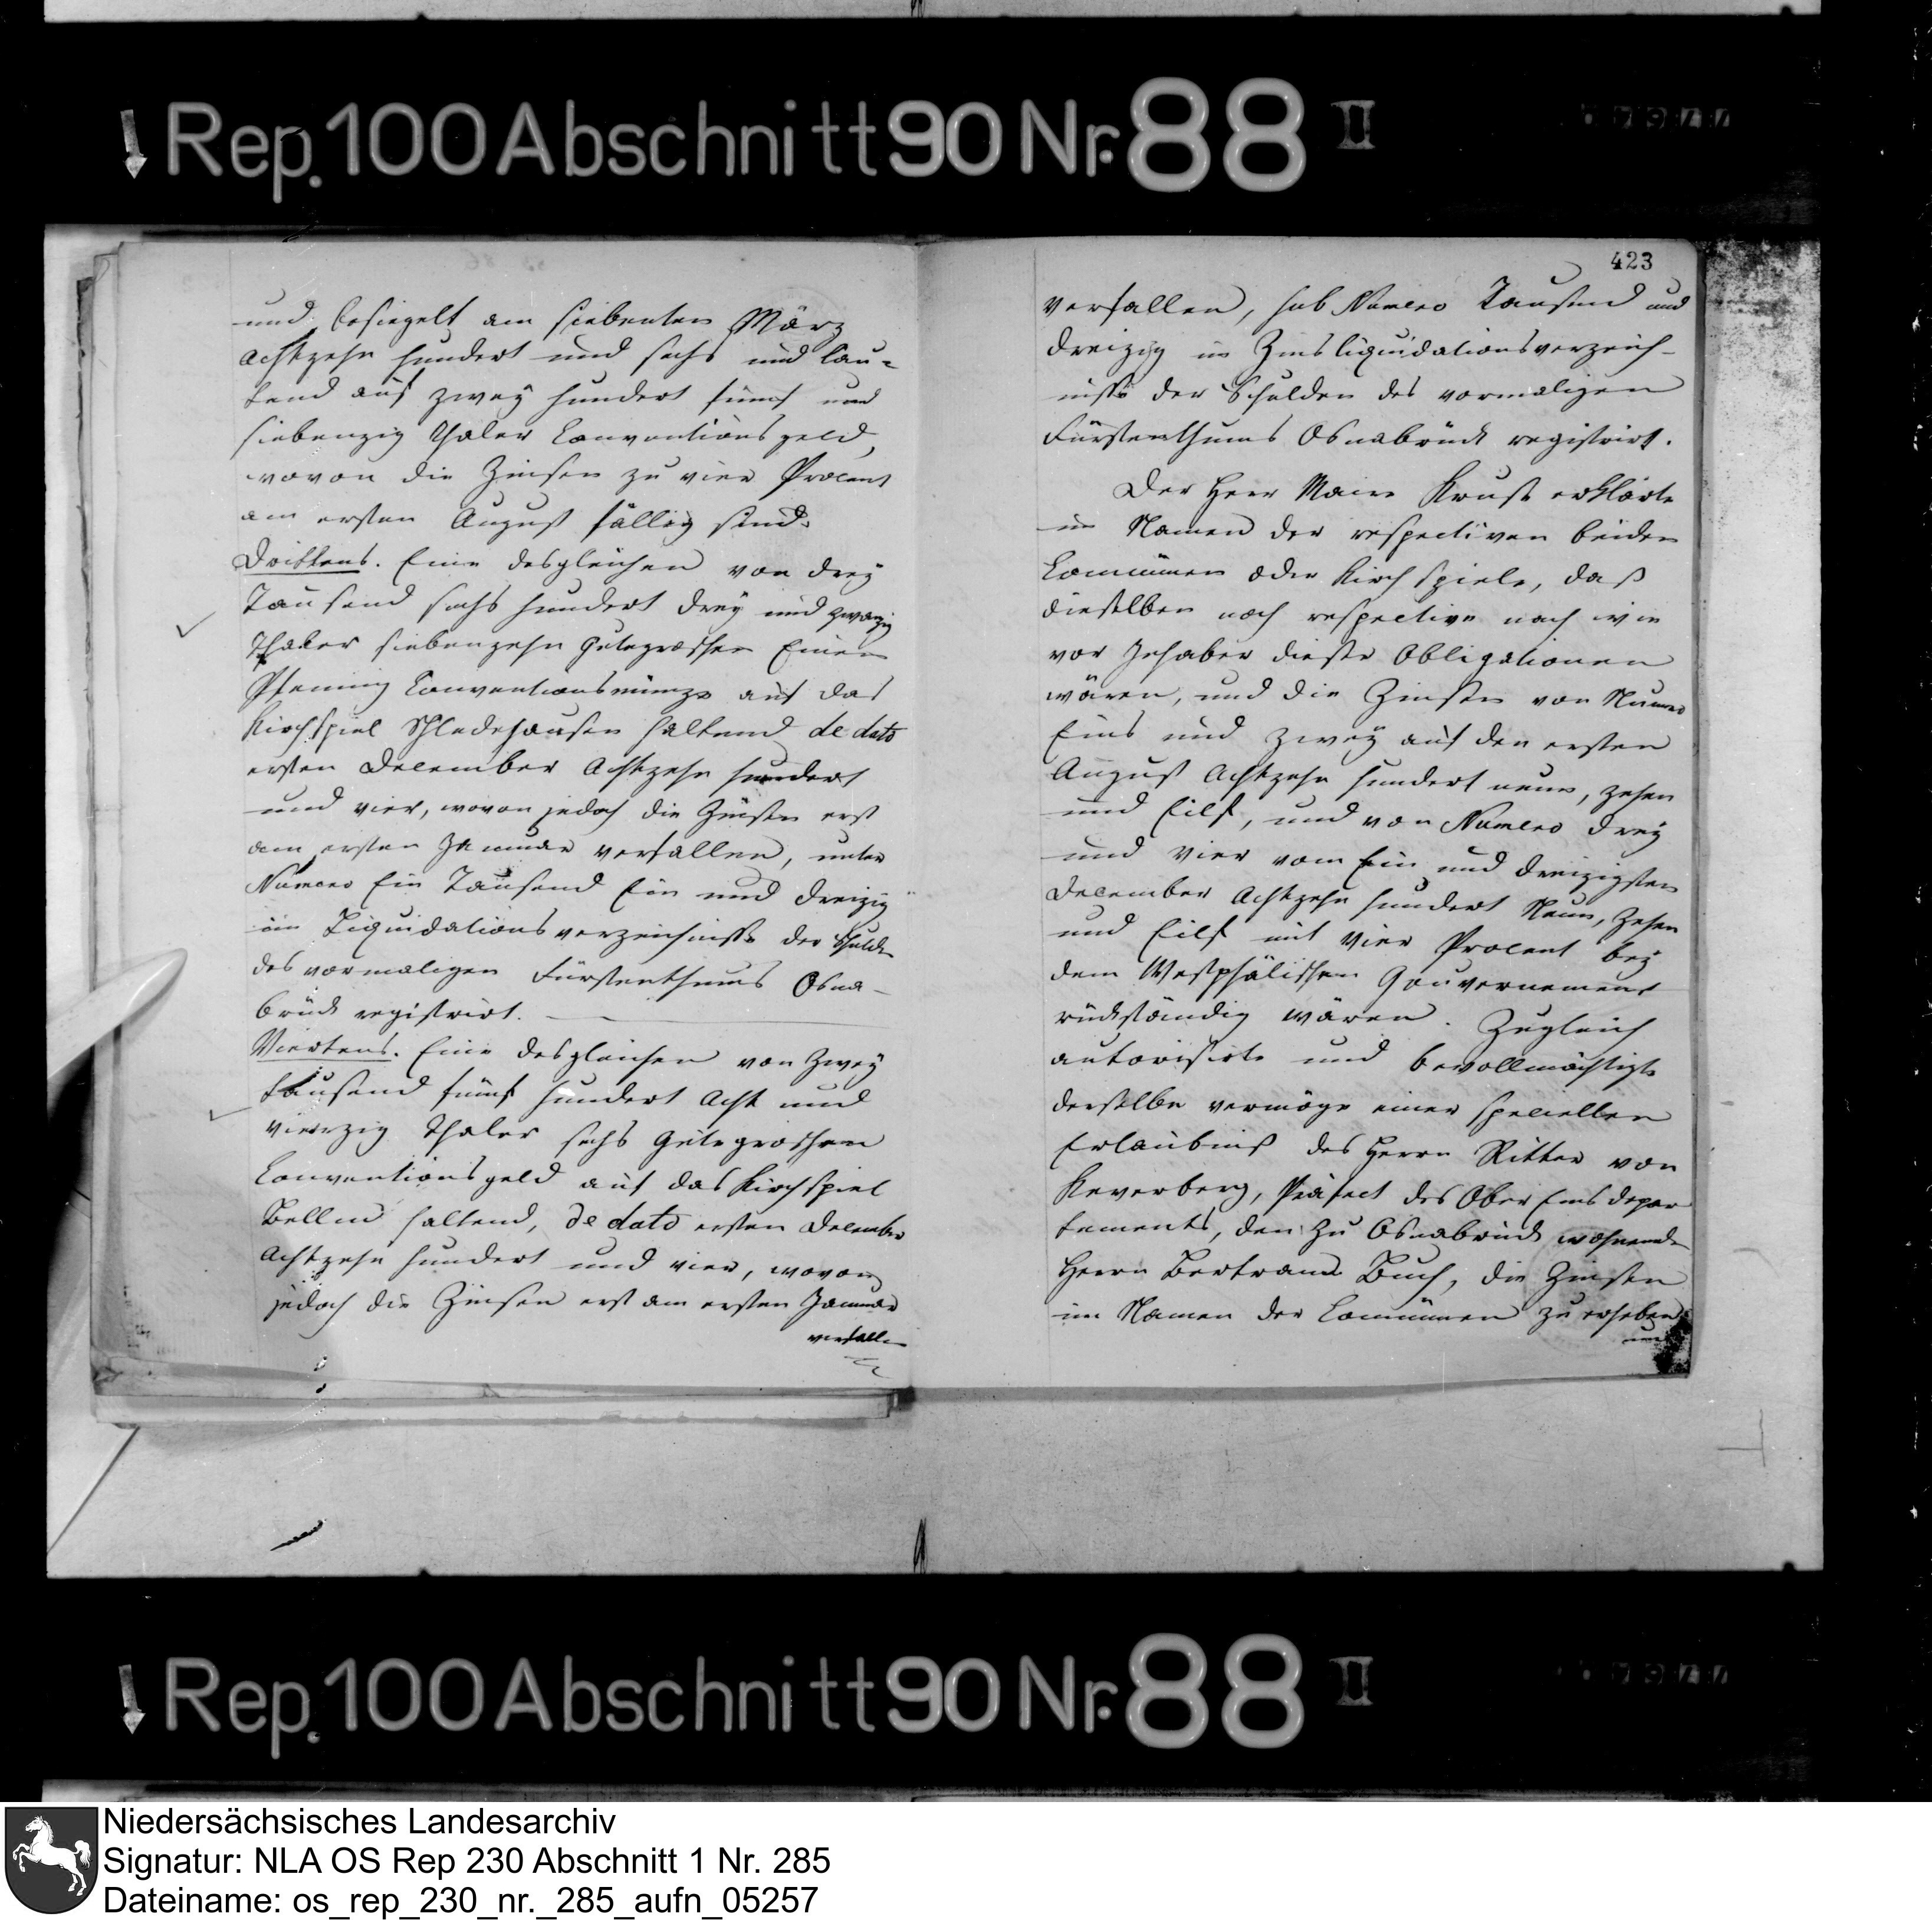 Rep. 100 Abschnitt 90 Nr. 88 II
und besiegelt am siebenten März
achtzehn hundert und sechs und lau-
tend auf zwey hundert fünf und
siebenzig Thaler Conventionsgeld,
wovon die Zinsen zu vier Procent
am ersten August fällig sind.
Drittens. Eine desgleichen von drey
Tausend sechs hundert drey und zwanzig
Thaler siebenzehn Gutegroschen Einen
Pfenning Conventionsmünze auf das
Kirchspiel Schledehausen haltend de dato
ersten December achtzehn hundert
und vier, wovon jedoch die Zinsen erst
am ersten Januar verfallen, unter
Numero Ein Tausend Ein und dreizig
im Liquidationsverzeichnisse der Schulden
des vormaligen Fürstenthums Osna-
brück registrirt.
Viertens. Eine desgleichen von Zwey
tausend fünf hundert Acht und
vierzig Thaler sechs Gutegroschen
Conventionsgeld auf das Kirchspiel
Bellm haltend, de dato ersten December
Achtzehn hundert und vier, wovon
jedoch die Zinsen erst am ersten Januar
verfallen
423
verfallen, sub Numero Tausend und
dreizig im Zinsliquidationsverzeich-
nisse der Schulden des vormaligen
Fürstenthums Osnabrück registrirt.
Der Herr Maire Krust erklärte
im Namen der respectiven beiden
Communen oder Kirchspiele, daß
dieselben noch respective nach wie
vor Inhaber dieser Obligationen
wären, und die Zinsen von Numero
Eins und zwey auf den ersten
August Achtzehn hundert neun, zehen
und Eilf, und von Numero drey
und vier vom Ein und dreizigsten
December Achtzehn hundert Neun, Zehen
und Eilf mit vier Procent bey
dem Westphälischen Gouvernement
rückständig wären. Zugleich
autorisirte und bevollmächtigte
derselbe vermöge einer speciellen
Erlaubniß des Herrn Ritter von
Keverberg, Präfect des Ober Ems depar
tements, den zu Osnabrück wohnenden
Herrn Bertram Buch, die Zinsen
im Namen der Communen zu erheben
und
Rep. 100 Abschnitt 90 Nr. 88 II
Niedersächsisches Landesarchiv
Signatur: NLA OS Rep 230 Abschnitt 1 Nr. 285
Dateiname: os_rep_230_nr._285_aufn_05257